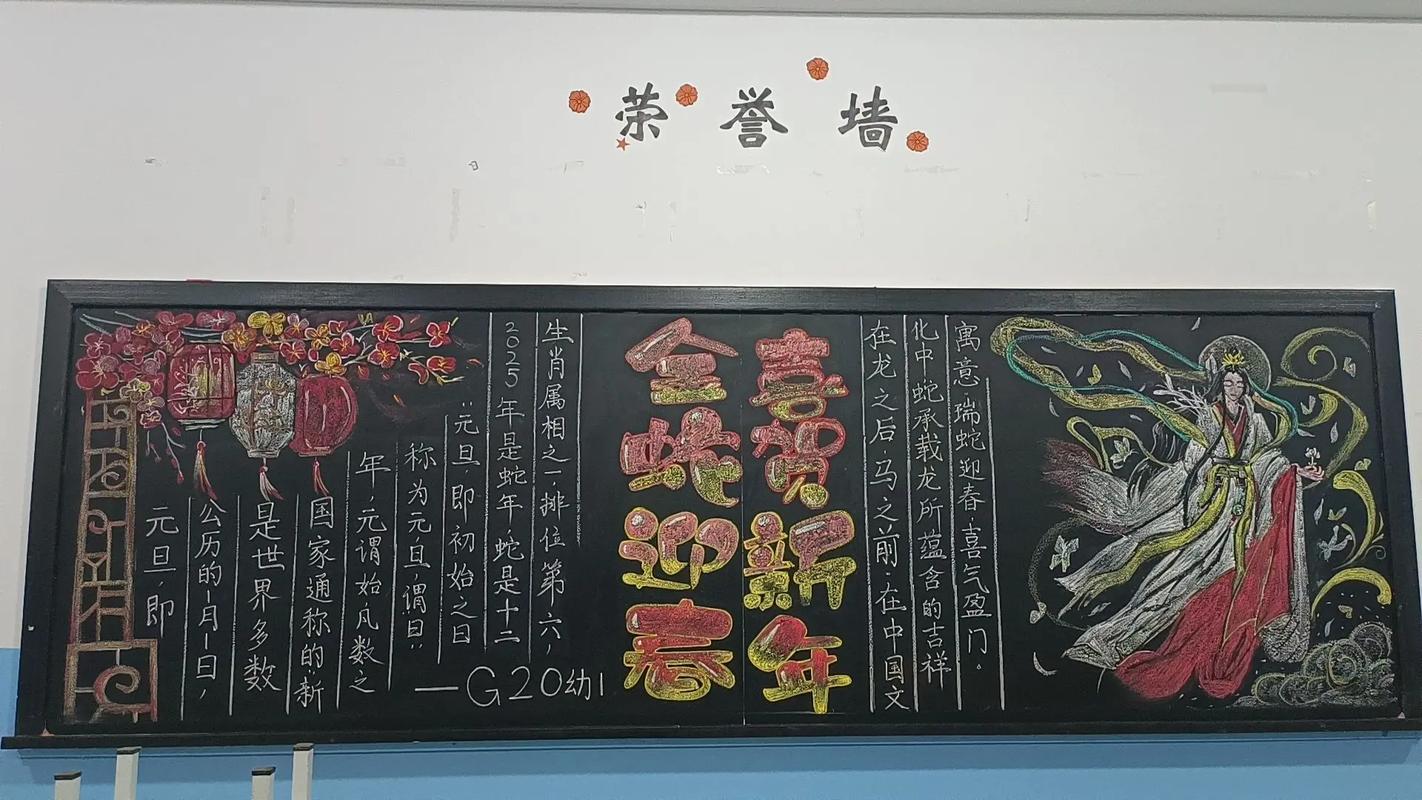 荣誉墙
元旦,即
公历的1月1日,
是世界多数
国家通称的"新
年,元谓始凡数之
称为元,旦,谓日"
"元旦,即初始之日
2025年是蛇年,蛇是十二
生肖属相之一,排位第六,
—G20幼1
金蛇迎春
喜贺新年
在龙之后,马之前,在中国文
化中蛇承载龙所蕴含的吉祥
寓意,瑞蛇迎春喜气盈门。